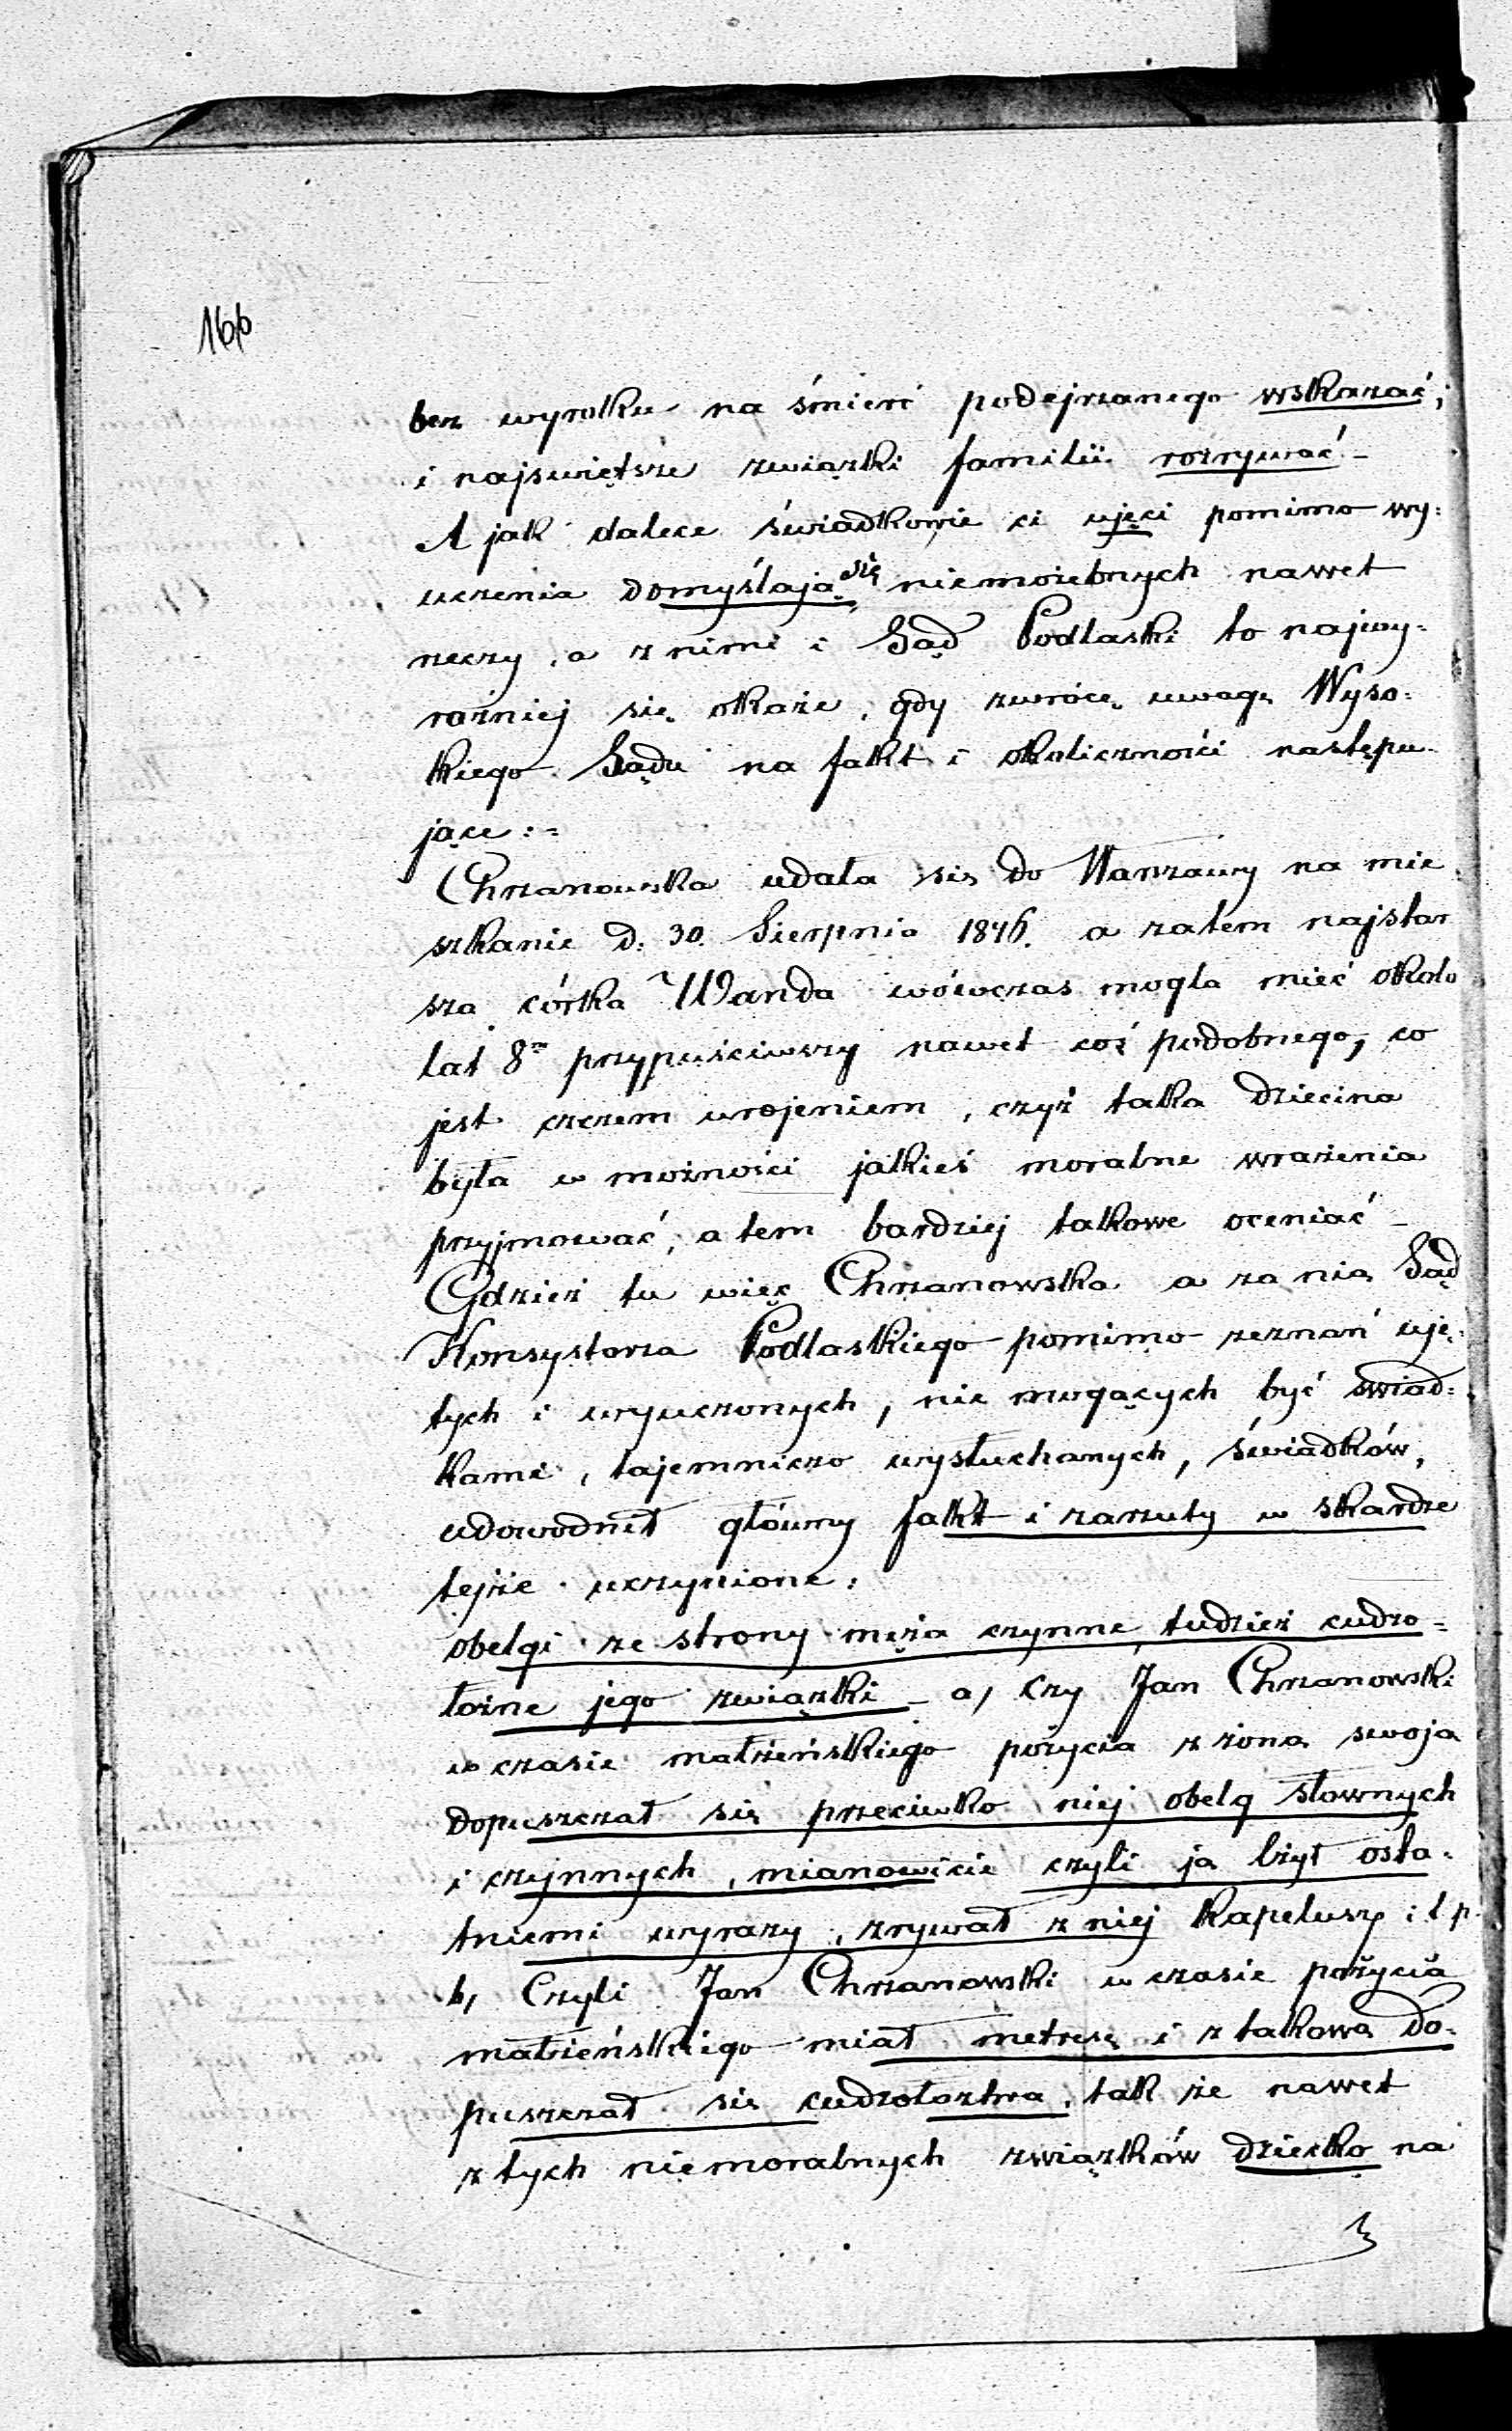 166
bez wyroku na śmierć podejrzanego wskazać;
i najswiętsze związki familii rozrywać –
A jak dalece świadkowie ci ujęci pomimo wy:
uczenia domyślają się niemożebnych nawet
rzeczy, a z nimi i Sąd Podlaski to najwy:
raźniej się okaże, gdy zwrócę uwagę Wyso:
kiego Sądu na fakt i okoliczności następu:
jące:=
Chrzanowska udała się do Warszawy na mie
szkanie d: 30. Sierpnia 1846. a zatem najstar
sza córka Wanda wówczas mogła mieć około
lat 8m przypuściwszy nawet coś podobnego, co
jest czczem urojeniem, czyż taka dziecina
była w możności jakieś moralne wrażenia
przyjmować, a tem bardziej takowe oceniać –
Gdzież tu więc Chrzanowska a za nią Sąd
Konsystorza Podlaskiego pomimo zeznań uję:
tych i wyuczonych, nie mogących być świad:
kami, tajemniczo wysłuchanych, świadków,
udowodnił główny fakt i zarzuty w skardze
tejże uczynione:
obelgi ze strony męża czynne, tudzież cudzo=
łożne jego związki – a, Czy Jan Chrzanowski
w czasie małżeńskiego pożycia z żoną swoją
dopuszczał się przeciwko niej obelg słownych
i czynnych, mianowicie czyli ją lżył osta:
tniemi wyrazy, zrywał z niej kapelusz i t p.
b, Czyli Jan Chrzanowski w czasie pożycia
małżeńskiego miał metresę i z takową do:
puszczał się cudzołoztwa, tak że nawet
z tych niemoralnych związków dziecko na